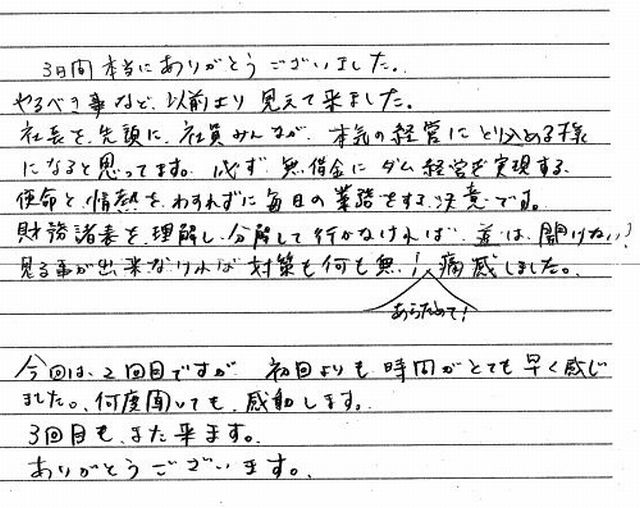 3日間本当にありがとうございました。
やるべき事など、以前より見えて来ました。
社長を先頭に、社員みんなが、本気の経営にとり込める様
になると思ってます。必ず無借金にダム経営を実現する
使命と、情熱をわすれずに毎日の業務をする決意です。
財務諸表を理解し分解して行かなければ道は開けない?
見る事が出来なければ対策も何も無い!痛感しました。
あらためて!
今回は、2回目ですが初回よりも時間がとても早く感じ
ました。何度聞いても感動します。
3回目も、また来ます。
ありがとうございます。